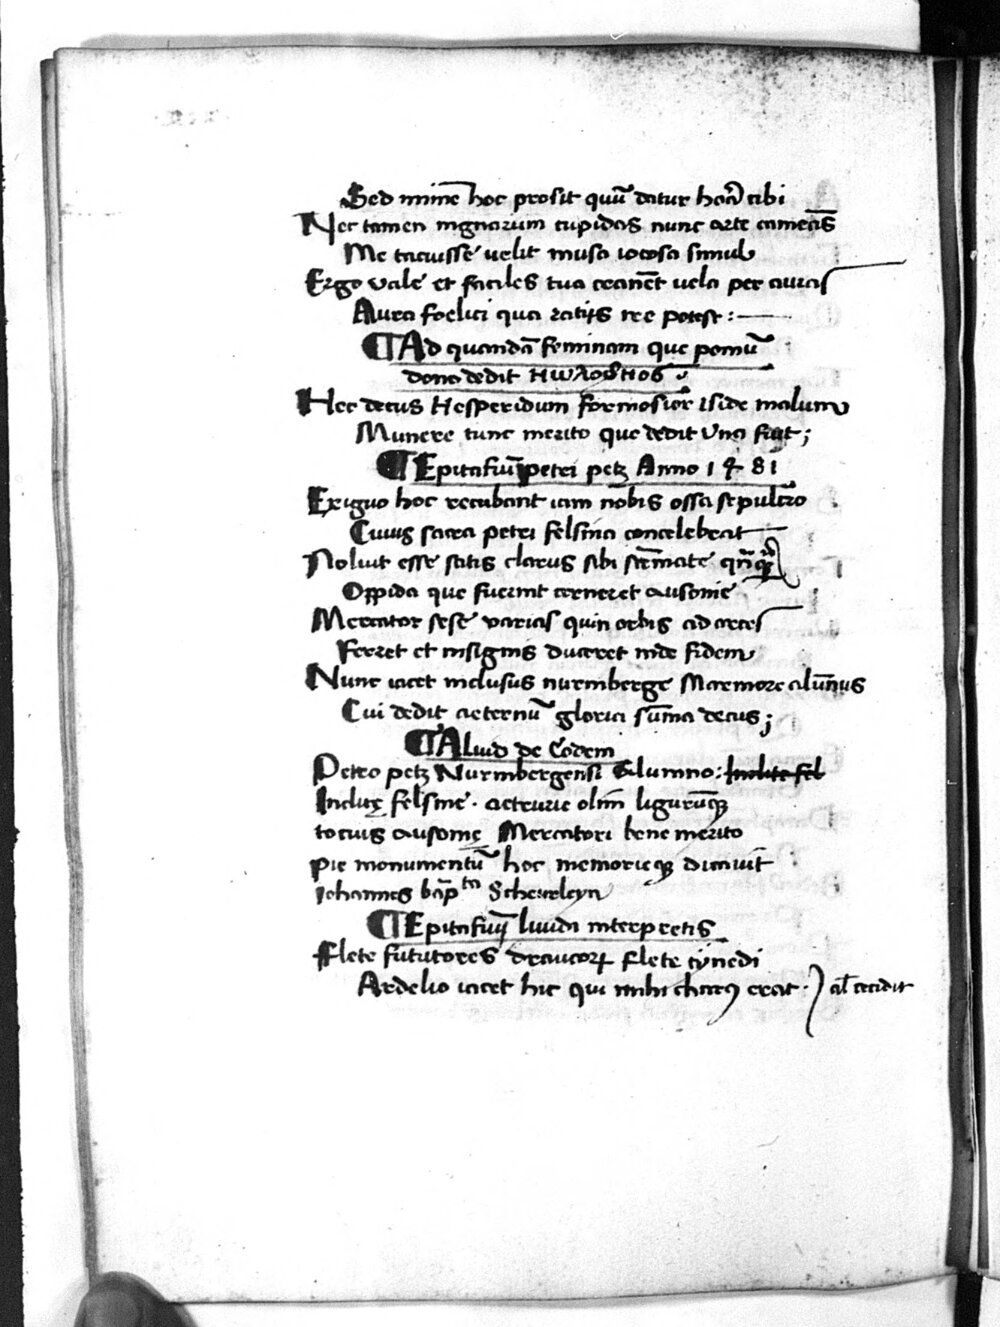 Sed minē hoc prosit quū datur hora tibi
Nec tamen ingnarum cupidas nunc arte camenas
Me tacuisse velit musa iocosa simul
Ergo vale et faciles tua ceanēt vela per auras
Aura foelici qua ratiis ree potest :
¶ Ad quandā feminam que pomū
dono dedit
Hec decus Hesperidum formosior iside malum
Munere tunc merito que dedit una fuit ;
¶ Epitafiū petri petz Anno 1481
Exiguo hoc recubant iam nobis ossa sepulcro
Cuius sacra petri felsina concelebrat
Noluit esse satis clarus sibi stēmate
Oppida que fuerint cerneret ausonie
Mercator sese varias quin orbis ad arces
Ferret et insignis duceret inde fidem
Nunc iacet inclusus nurmberge Marmore alūnus
Cui dedit aeternū gloria sūma decus ;
¶ Aliud de Eodem
Petro petz Nurmbergensi Alumno : Inclite fel
Inclitę felsine · aetrurie olim ligurumq̄
tocius ausonię Mercatori bene merito
pie monumentū hoc memorieq̨ dicavit
Iohannes bāptā Scheurleyn
¶ Epitafiū lividi interpretis
Flete fututores draucorum flete cynedi
Ardelio iacet hic qui mihi charus erat · al̄ cecidit